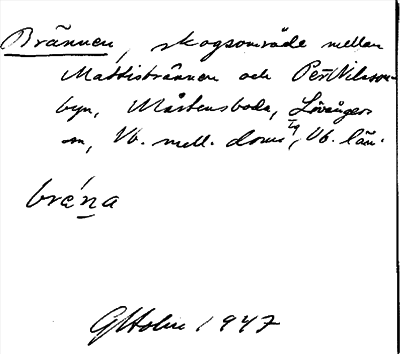 Brännen, skogsområde mellan
Mattisbrännen och Per Nilsson-
byn, Mårtensboda, Lövångers
sn, Vb. mell. doms tg, Vb. län.
brä́na
G Holm 1947